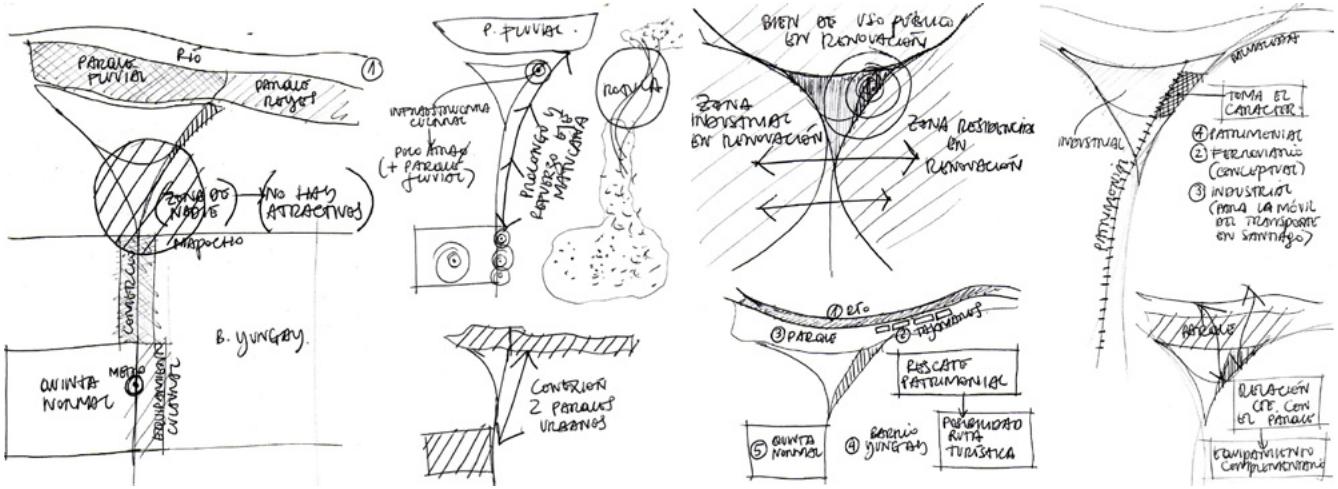 RÍO
PARQUE
FLUVIAL
PARQUE
REYES
1
(ZONA DE
NADIE)
(NO HAY
ATRACTIVOS)
MAPOCHO
COMERCIO
B. YUNGAY.
QUINTA
NORMAL
METRO
EQUIPAMIENTO
CULTURAL
P. FLUVIAL.
INFRAESTRUCTURA
CULTURAL
(+ PARQUE
FLUVIAL)
PROLONGO Y
REFUERZO EJE
MATUCANA
CONEXIÓN
2 PARQUES
URBANOS
BIEN DE USO PÚBLICO
EN RENOVACIÓN
ZONA
INDUSTRIAL
EN RENOVACIÓN
ZONA RESIDENCIAL
EN
RENOVACIÓN
1 RÍO
3 PARQUE
2 TAJAMARES
RESCATE
PATRIMONIAL
POSIBILIDAD
RUTA
TURÍSTICA
5 QUINTA
NORMAL
4 BARRIO
YUNGAY
INDUSTRIAL
TOMA EL
CARÁCTER:
PATRIMONIAL
2 FERROVIARIO
(CONCEPTUAL)
3 INDUSTRIAL
(PARA LA MÓVIL
DEL TRANSPORTE
EN SANTIAGO)
PARQUE
RELACIÓN
CON
EL PARQUE
EQUIPAMIENTO
COMPLEMENTARIO